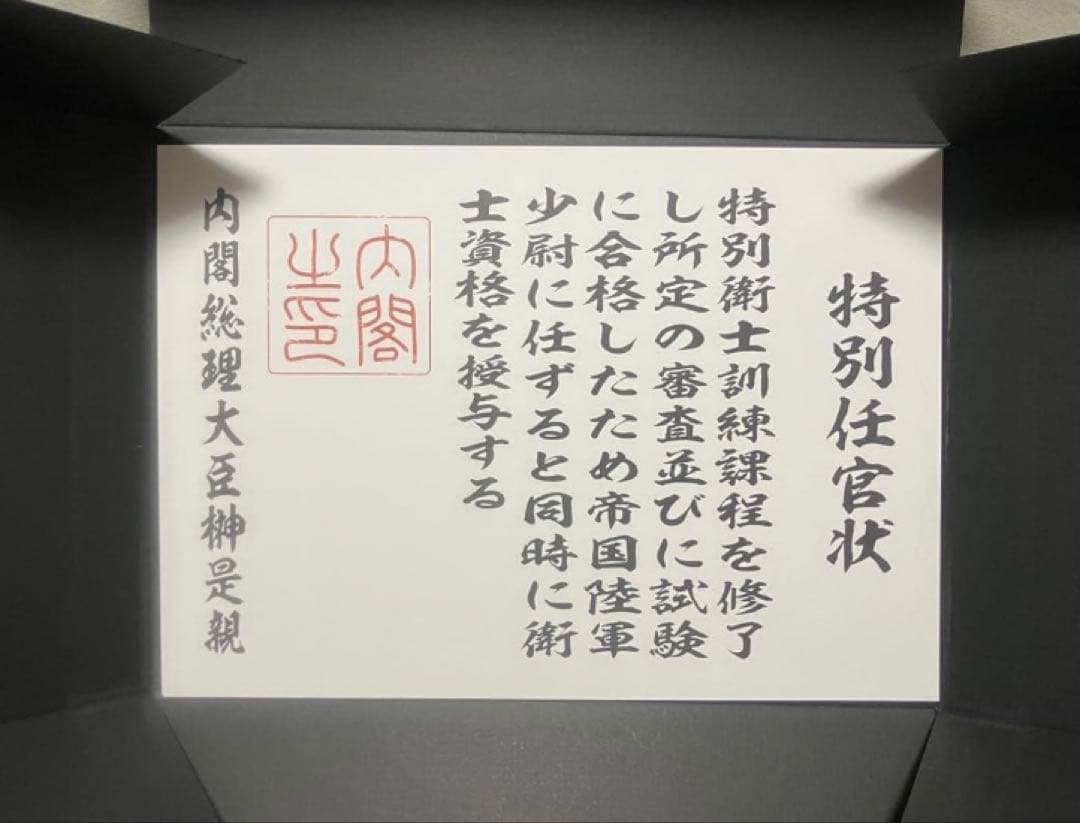 特別任官状
特別衛士訓練課程を修了
し所定の審査並びに試験
に合格したため帝国陸軍
少尉に任ずると同時に衛
士資格を授与する
内閣
之印
内閣総理大臣榊是親